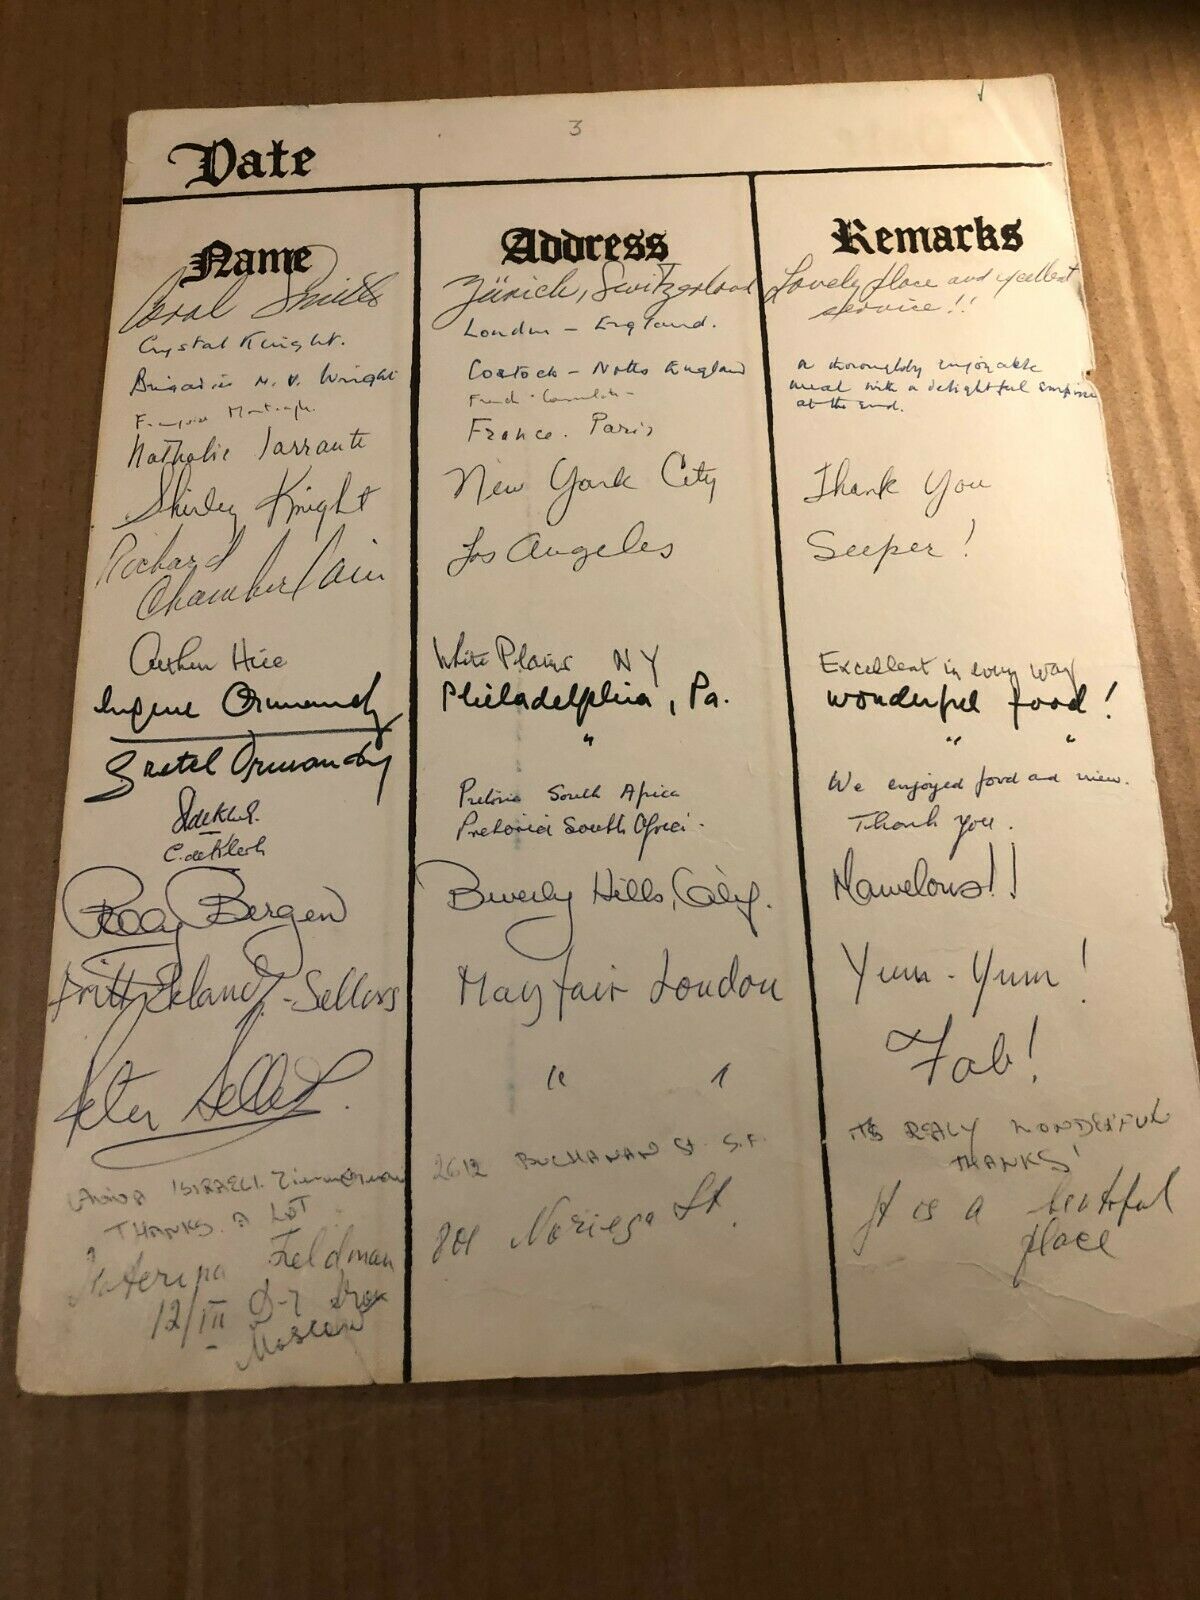 3
Date
Name Address Remarks
Coral Smith Zürich, Switzerland Lovely place and excellent
service!!
Crystal Knight. London - England.
Brigadier H. V. Wright Costock - Notts England a thoroughly enjoyable
meal with a delightful surprise
at the end.
French
Nathalie France. Paris
Shirley Knight New York City Thank You
Richard Los Angeles Seeper!
Chamberlain
White Plains NY Excellent in every way
Eugene Ormandy Philadelphia, Pa. wonderful food!
Gretel Ormandy " " "
Pretoria South Africa We enjoyed food and view.
C. de Klerk Pretoria South Africa. Thank you.
Polly Bergen Beverly Hills, Calif. Marvelous!!
Britt Ekland-Sellers Mayfair London Yum-Yum!
Peter Sellers. " " Fab!
ISRAELI. Zimmerman 2612 BUCHANAN St. S.F. ITS REALY WONDERFUL
THANKS A LOT THANKS!
Katerina Feldman 801 Noriega St. It is a beutiful
place
12/III
- Moscow